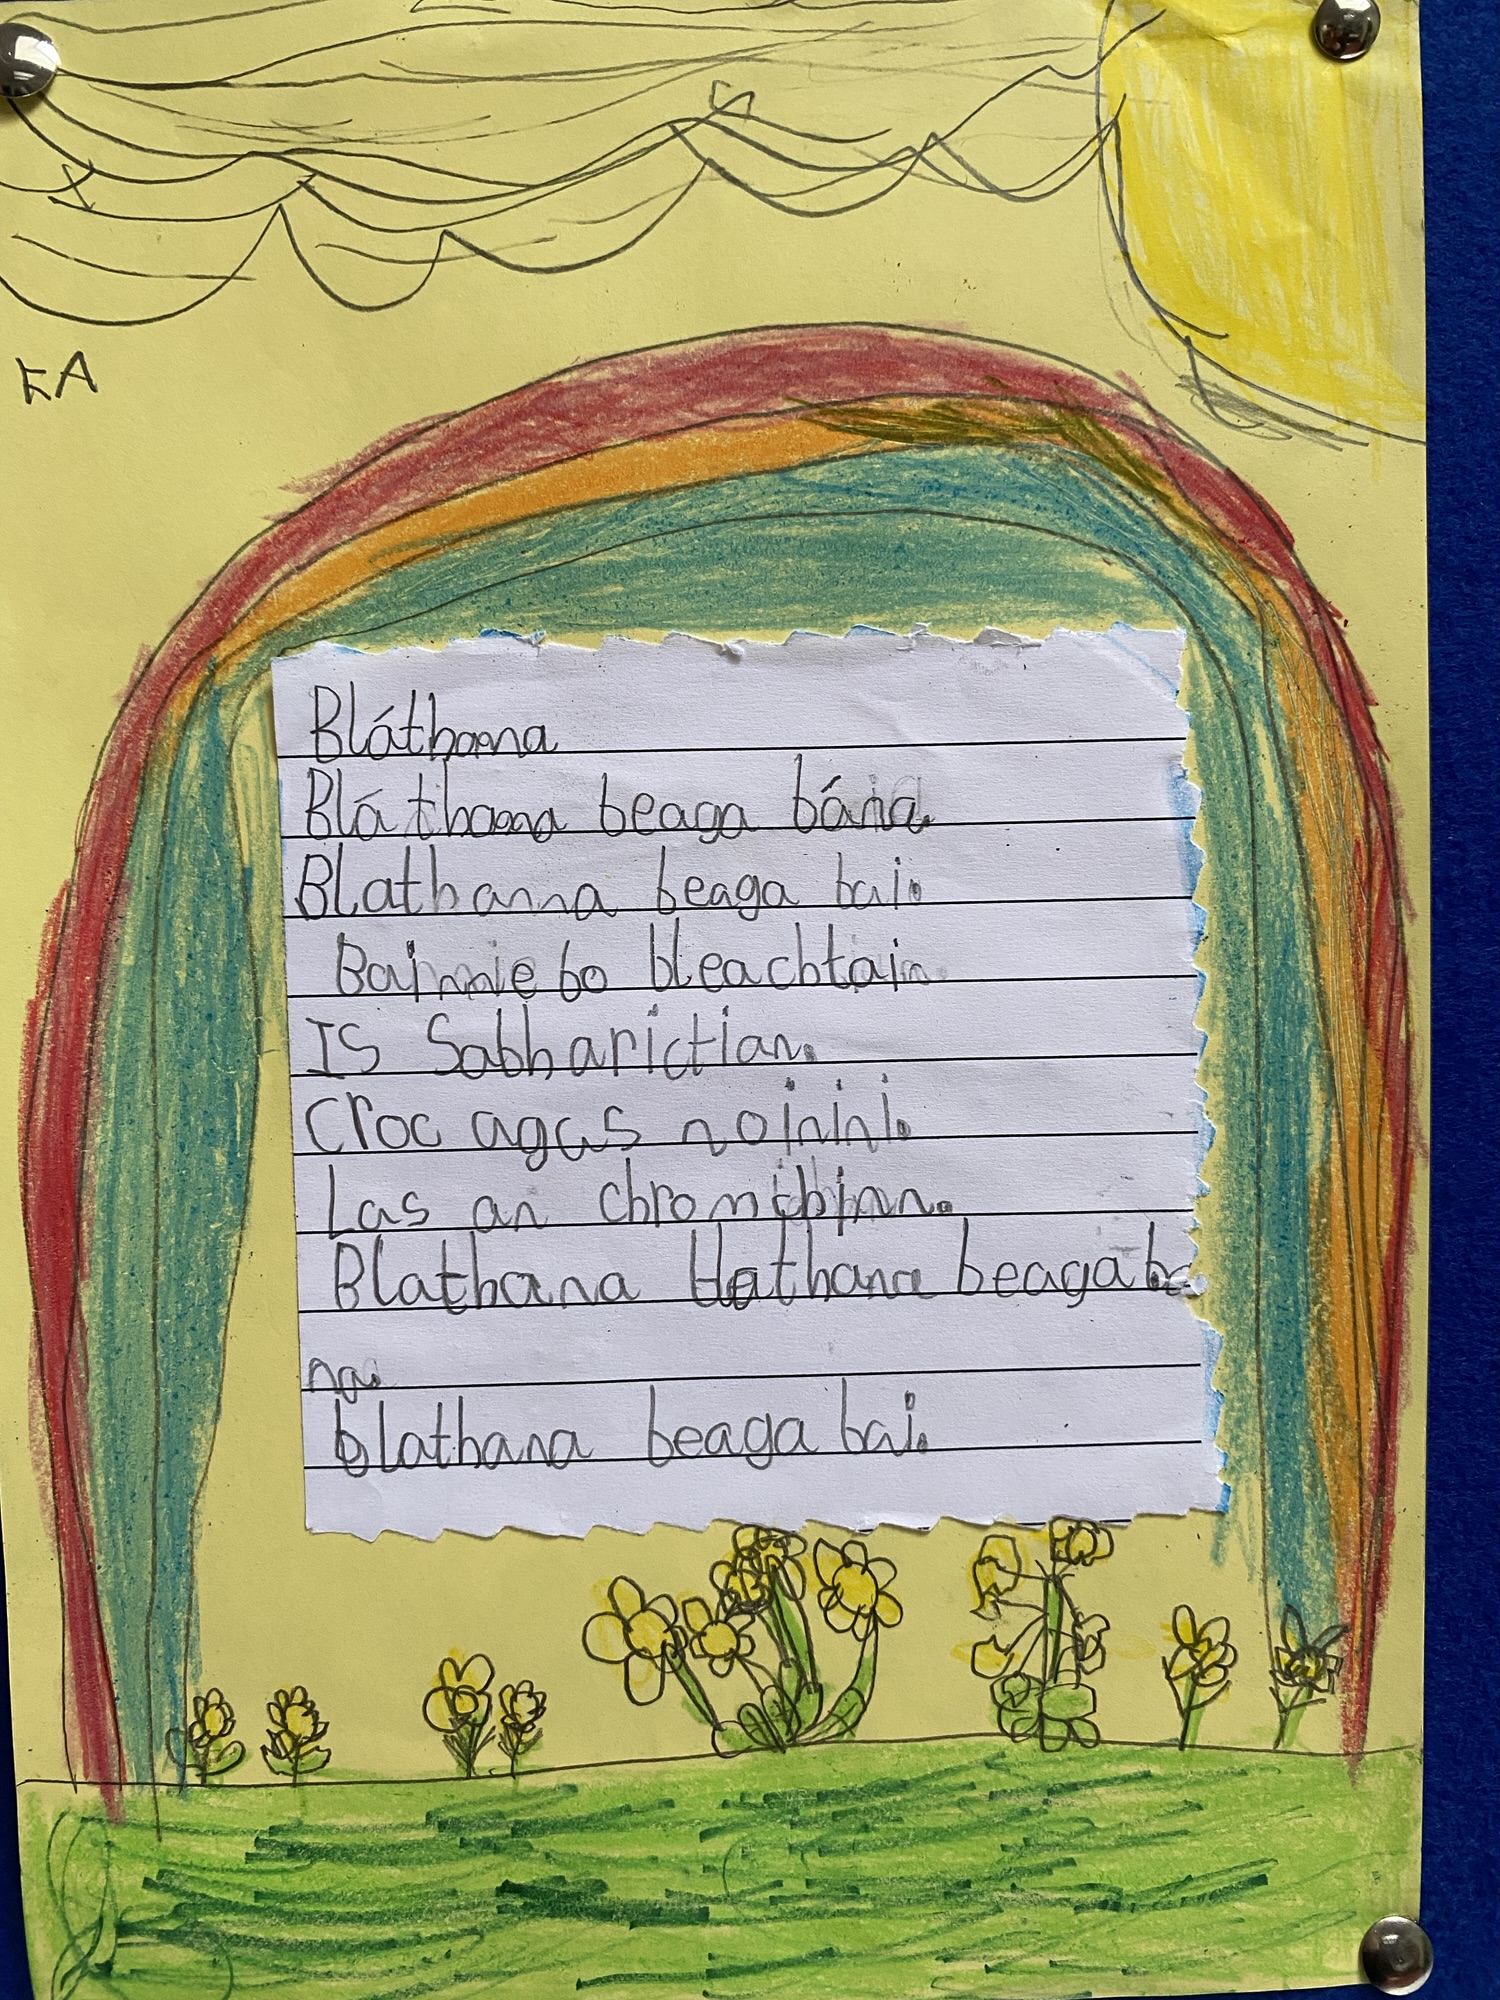 KA
Bláthanna
Bláthanna beaga bána.
Blathanna beaga bai.
Bainnie bo bleachtain.
Is Sabharictian.
Croc agus noinini.
Las an chromchinn.
Blathana blathana beaga ba
na.
blathana beaga bai.